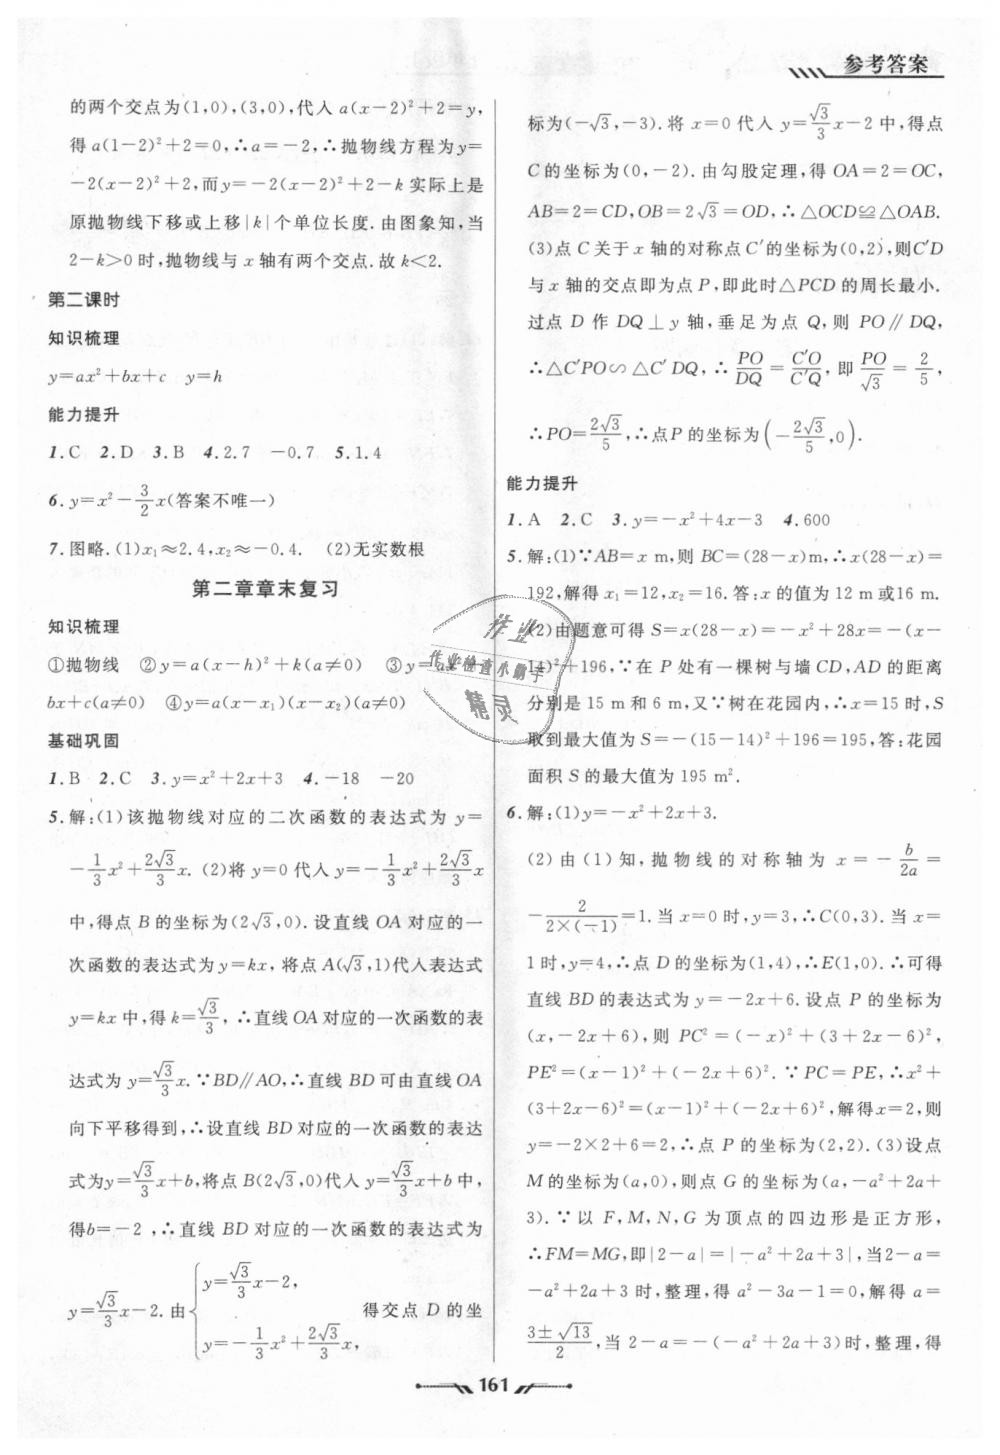 参考答案
的两个交点为(1,0),(3,0),代入a(x-2)²+2=y,
得a(1-2)²+2=0,∴a=-2,∴抛物线方程为y=
-2(x-2)²+2,而y=-2(x-2)²+2-k实际上是
原抛物线下移或上移|k|个单位长度.由图象知,当
2-k>0时,抛物线与x轴有两个交点.故k<2.
第二课时
知识梳理
y=ax²+bx+c y=h
能力提升
1.C 2.D 3.B 4.2.7 -0.7 5.1.4
6.y=x²-3/2x(答案不唯一)
7.图略.(1)x₁≈2.4,x₂≈-0.4. (2)无实数根
第二章章末复习
知识梳理
①抛物线 ②y=a(x-h)²+k(a≠0) ③y=ax²
bx+c(a≠0) ④y=a(x-x₁)(x-x₂)(a≠0)
基础巩固
1.B 2.C 3.y=x²+2x+3 4.-18 -20
5.解:(1)该抛物线对应的二次函数的表达式为y=
-1/3x²+2√3/3x.(2)将y=0代入y=-1/3x²+2√3/3x
中,得点B的坐标为(2√3,0).设直线OA对应的一
次函数的表达式为y=kx,将点A(√3,1)代入表达式
y=kx中,得k=√3/3,∴直线OA对应的一次函数的表
达式为y=√3/3x.∵BD∥AO,∴直线BD可由直线OA
向下平移得到,∴设直线BD对应的一次函数的表达
式为y=√3/3x+b,将点B(2√3,0)代入y=√3/3x+b中,
得b=-2,∴直线BD对应的一次函数的表达式为
y=√3/3x-2.由{y=√3/3x-2, y=-1/3x²+2√3/3x, 得交点D的坐
标为(-√3,-3).将x=0代入y=√3/3x-2中,得点
C的坐标为(0,-2).由勾股定理,得OA=2=OC,
AB=2=CD,OB=2√3=OD,∴△OCD≌△OAB.
(3)点C关于x轴的对称点C′的坐标为(0,2),则C′D
与x轴的交点即为点P,即此时△PCD的周长最小.
过点D作DQ⊥y轴,垂足为点Q,则PO∥DQ,
∴△C′PO∽△C′DQ,∴PO/DQ=C′O/C′Q,即PO/√3=2/5,
∴PO=2√3/5,∴点P的坐标为(-2√3/5,0).
能力提升
1.A 2.C 3.y=-x²+4x-3 4.600
5.解:(1)∵AB=x m,则BC=(28-x)m,∴x(28-x)=
192,解得x₁=12,x₂=16.答:x的值为12 m或16 m.
(2)由题意可得S=x(28-x)=-x²+28x=-(x-
14)²+196,∵在P处有一棵树与墙CD,AD的距离
分别是15 m和6 m,又∵树在花园内,∴x=15时,S
取到最大值为S=-(15-14)²+196=195,答:花园
面积S的最大值为195 m².
6.解:(1)y=-x²+2x+3.
(2)由(1)知,抛物线的对称轴为x=-b/2a=
-2/2×(-1)=1.当x=0时,y=3,∴C(0,3).当x=
1时,y=4,∴点D的坐标为(1,4),∴E(1,0).∴可得
直线BD的表达式为y=-2x+6.设点P的坐标为
(x,-2x+6),则PC²=(-x)²+(3+2x-6)²,
PE²=(x-1)²+(-2x+6)².∵PC=PE,∴x²+
(3+2x-6)²=(x-1)²+(-2x+6)²,解得x=2,则
y=-2×2+6=2,∴点P的坐标为(2,2).(3)设点
M的坐标为(a,0),则点G的坐标为(a,-a²+2a+
3).∵以F,M,N,G为顶点的四边形是正方形,
∴FM=MG,即|2-a|=|-a²+2a+3|,当2-a=
-a²+2a+3时,整理,得a²-3a-1=0,解得a=
3±√13/2,当2-a=-(-a²+2a+3)时,整理,得
作业
作业检查小助手
精灵
161